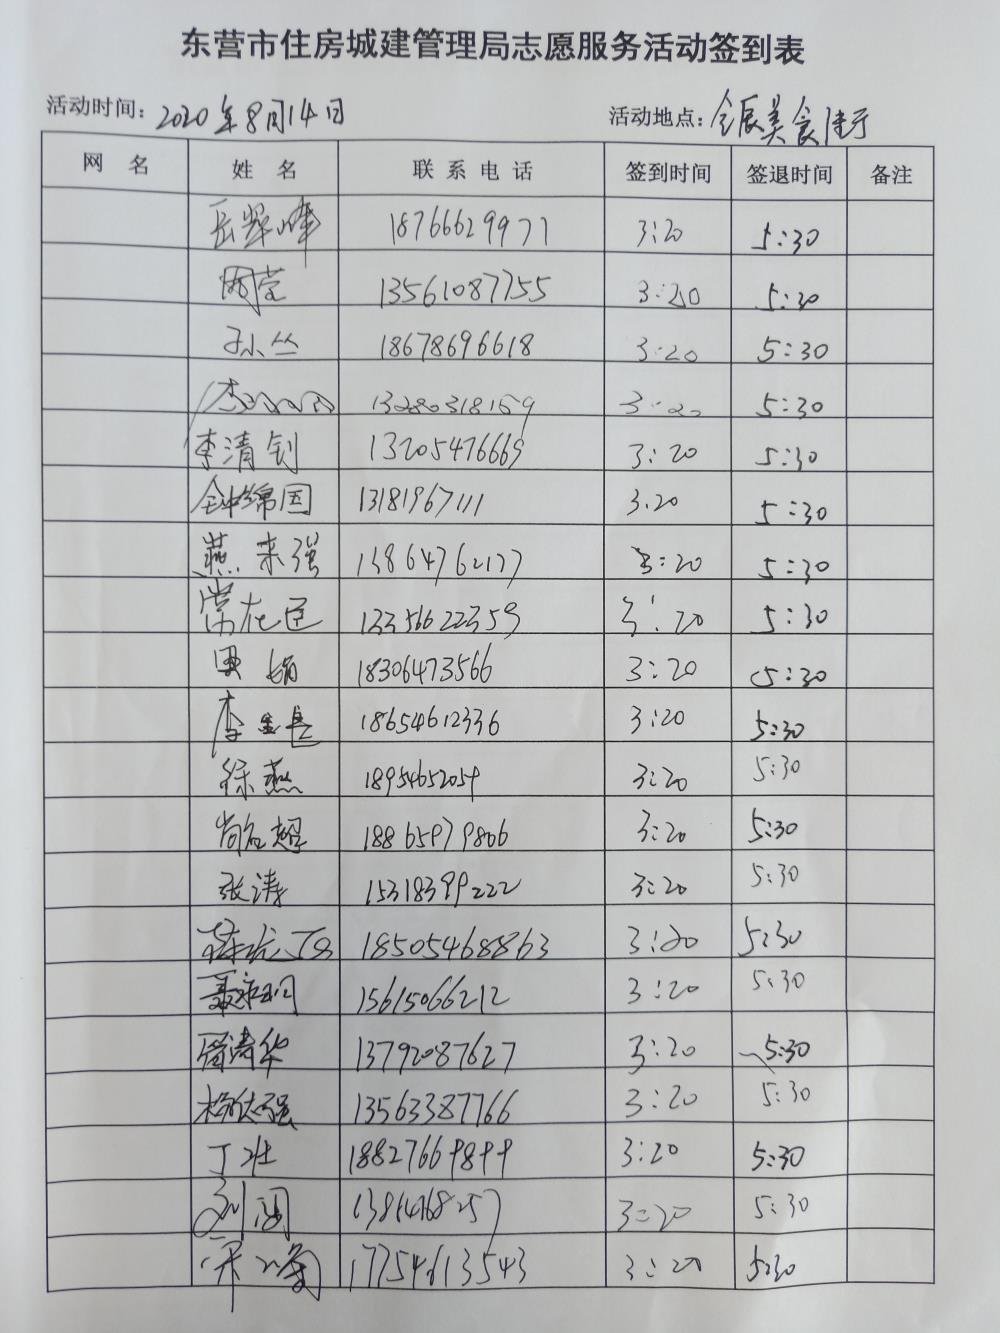 东营市住房城建管理局志愿服务活动签到表
活动时间：2020年8月14日 活动地点：
网名 姓名 联系电话 签到时间 签退时间 备注
岳 峰 18766629971 3:20 5:30
周莹 13561087755 3:20 5:30
孙丛 18678696618 3:20 5:30
李 13280318159 3:20 5:30
李清钊 13205476669 3:20 5:30
钟绵国 13181967111 3:20 5:30
燕来强 13864762177 3:20 5:30
常在臣 13356622359 3:20 5:30
田娟 18306473566 3:20 5:30
李 18654612336 3:20 5:30
徐燕 18954652059 3:20 5:30
尚名超 18865979806 3:20 5:30
张涛 15318399222 3:20 5:30
18505468863 3:20 5:30
聂 15615066212 3:20 5:30
清华 13792087627 3:20 5:30
杨 强 13563387766 3:20 5:30
丁壮 18827669899 3:20 5:30
刘 3:20 5:30
宋 17754613543 3:20 5:30